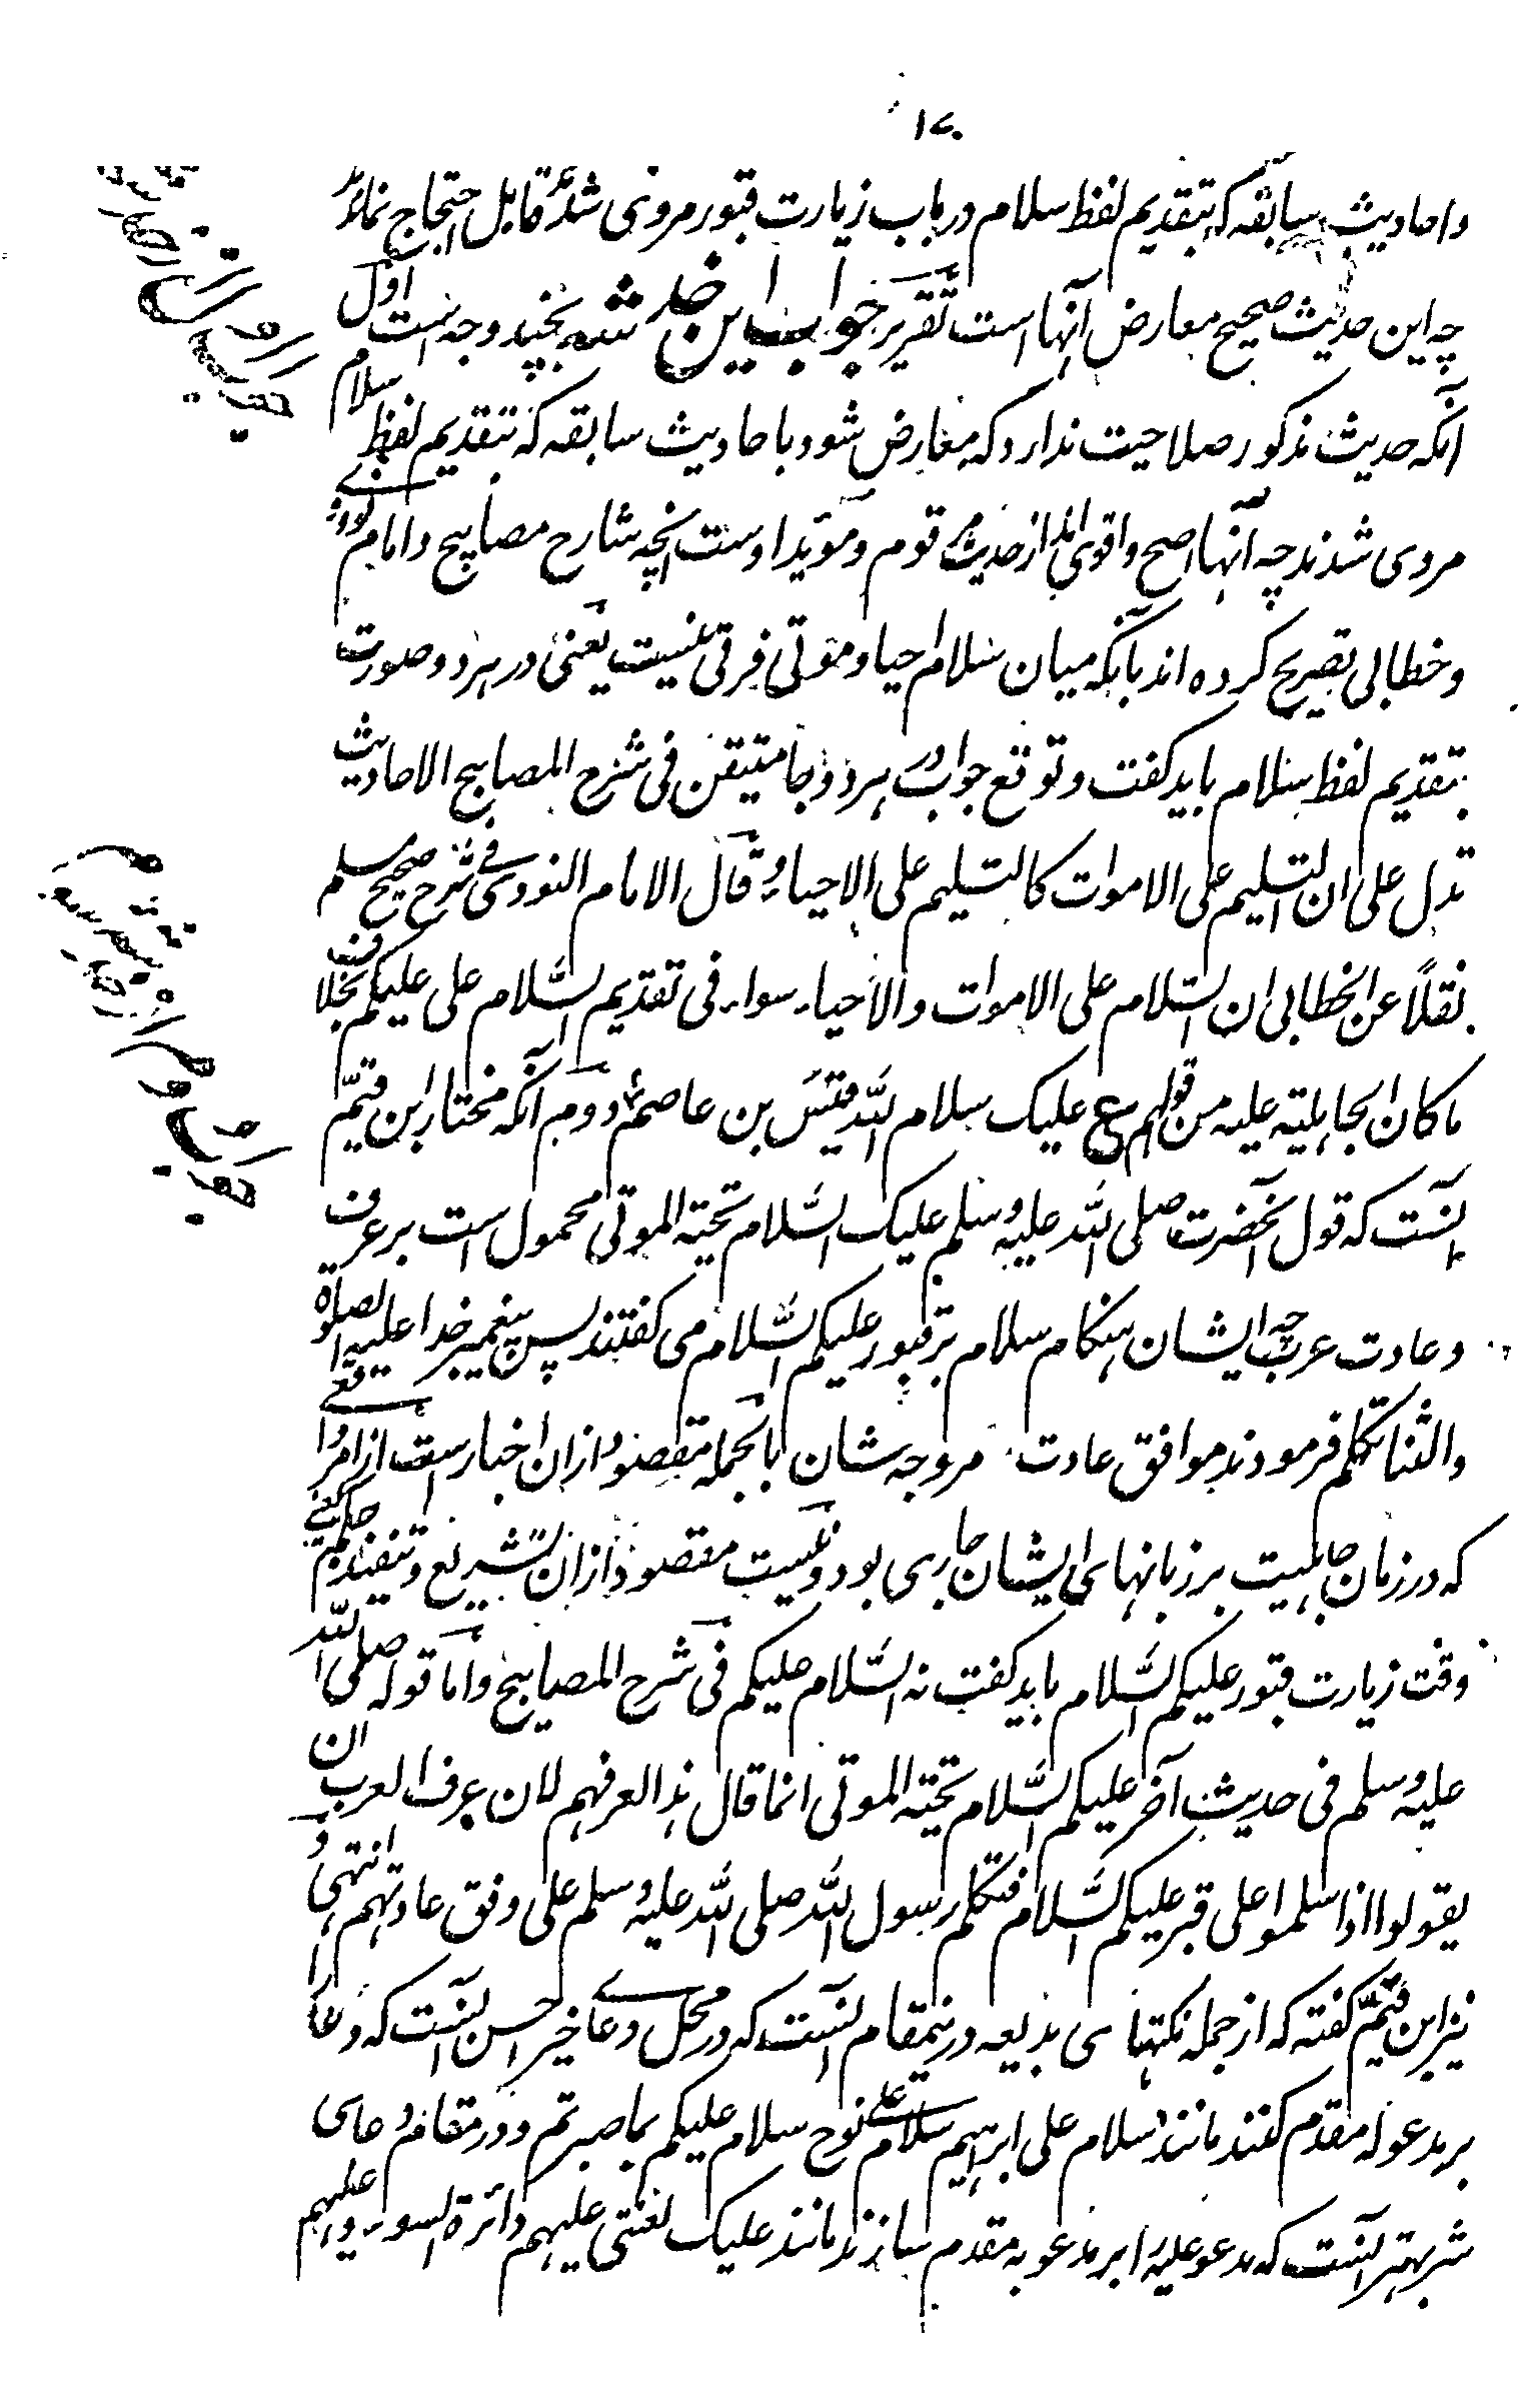 ١٧٠
واحادیث سابقه که بتقدیم لفظ سلام در باب زیارت قبور مروی شده قابل احتجاج نماند
چه این حدیث صحیح معارض آنها است تقریر جواب این خدشه بچند وجه است اول
آنکه حدیث مذکور صلاحیت ندارد که معارض شود با حادیث سابقه که بتقدیم لفظ سلام
مروی شدند چه آنها اصح واقوی اند از حدیث مرقوم ومؤید اوست انچه شارح مصابیح وامام نووی
وخطابی تصریح کرده اند بآنکه میان سلام احیا وموتی فرقی نیست یعنی در هر دو صورت
بتقدیم لفظ سلام باید کفت وتوقع جواب در هر دو جا متیقن فی شرح المصابیح الاحادیث
تدل علی ان التسلیم علی الاموات کالتسلیم علی الاحیاء وقال الامام النووی فی شرح صحیح مسلم
نقلاً عن الخطابی ان السلام علی الاموات والاحیاء سواء فی تقدیم السّلام علی علیکم بخلاف
ما کان الجاهلیة علیه من قولهم ع علیک سلام اللّه قیس بن عاصم دوم آنکه مختار ابن قیّم
اینست که قول آنحضرت صلی اللّه علیه وسلم علیک السّلام تحیة الموتی محمول است بر عرف
وعادت عرب چه ایشان هنکام سلام بر قبور علیکم السّلام می کفتند پس پیغمبر خدا علیه الصلوة
والثنا تکلم فرمودند موافق عادت مروجه شان بالجمله مقصود ازان اخبار است از امر واقعی
که در زمان جاهلیت بر زبانهای ایشان جاری بود ونیست مقصود ازان تشریع وتنفیذ حکم یعنی
وقت زیارت قبور علیکم السّلام باید کفت نه السّلام علیکم فی شرح المصابیح واما قوله صلی اللّه
علیه وسلم فی حدیث آخر علیکم السّلام تحیة الموتی انما قال هذا لعرفهم لان عرف العرب ان
یقولوا اذا سلموا علی قبر علیکم السّلام فتکلم رسول اللّه صلی اللّه علیه وسلم علی وفق عادتهم انتهی و
نیز ابن قیّم کفته که از جمله نکتهای بدیعه درینمقام اینست که در محل دعای خیر احسن اینست که دعا را
بر مدعو له مقدم کنند مانند سلام علی ابراهیم سلام علی نوح سلام علیکم بما صبرتم ودر مقام دعای
شر بهتر اینست که مدعو علیه را بر مدعو به مقدم سازند مانند علیک لعنتی علیهم دائرة السوء وعلیهم